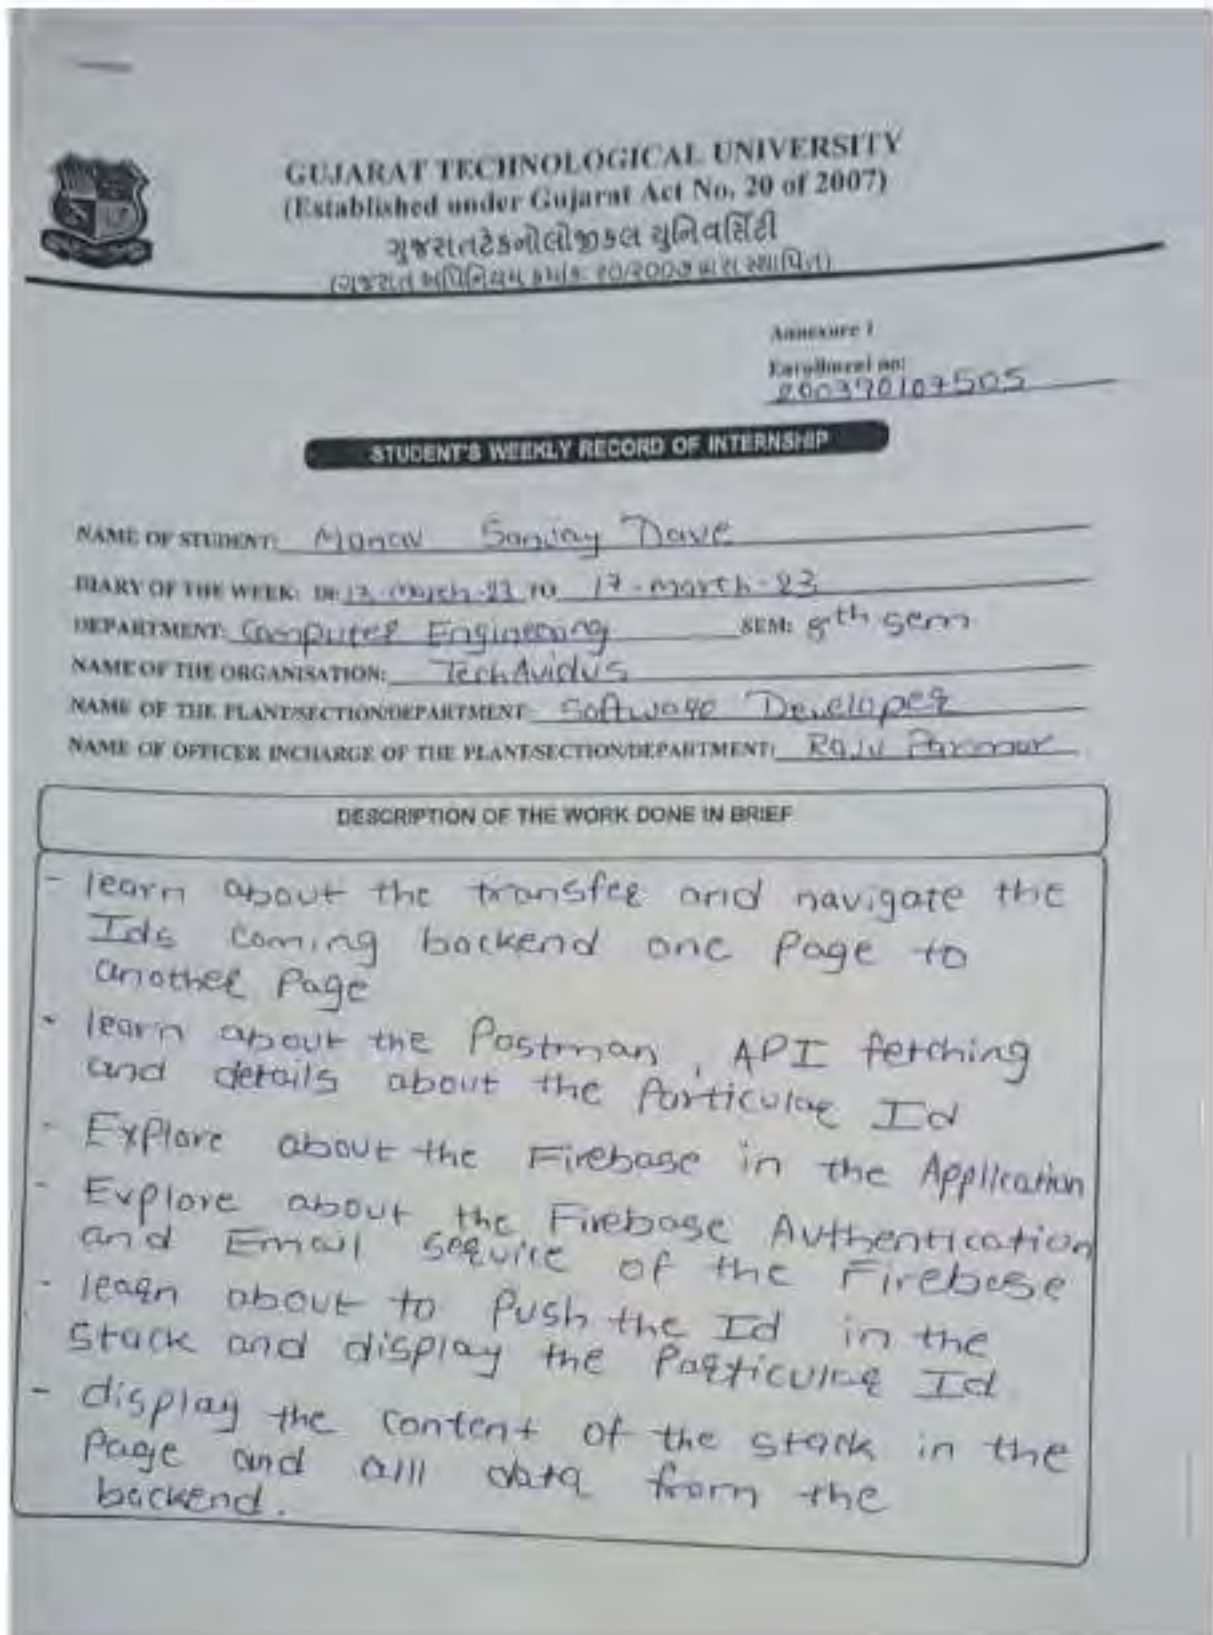 GUJARAT TECHNOLOGICAL UNIVERSITY
(Established under Gujarat Act No. 20 of 2007)
ગુજરાતટેકનોલોજીકલ યુનિવર્સિટી
(ગુજરાત અધિનિયમ ક્રમાંક: ૨૦/૨૦૦૭ દ્વારા સ્થાપિત)
Annexure 1
Enrollment no:
200370107505
STUDENT'S WEEKLY RECORD OF INTERNSHIP
NAME OF STUDENT: Manav Sanjay Dave
DIARY OF THE WEEK: DT 17-march-23
DEPARTMENT: Computer Engineering SEM: 8th sem
NAME OF THE ORGANISATION: TechAvidus
NAME OF THE PLANT/SECTION/DEPARTMENT: Software Developer
NAME OF OFFICER INCHARGE OF THE PLANT/SECTION/DEPARTMENT: Raju Parmar
DESCRIPTION OF THE WORK DONE IN BRIEF
- learn about the transfer and navigate the
Ids coming backend one Page to
another Page
- learn about the Postman, API fetching
and details about the Particular Id
- Explore about the Firebase in the Application
- Explore about the Firebase Authentication
and Email of the Firebase
- learn about to Push the Id in the
Stack and display the Particular Id
- display the content of the stack in the
Page and all data from the
backend.